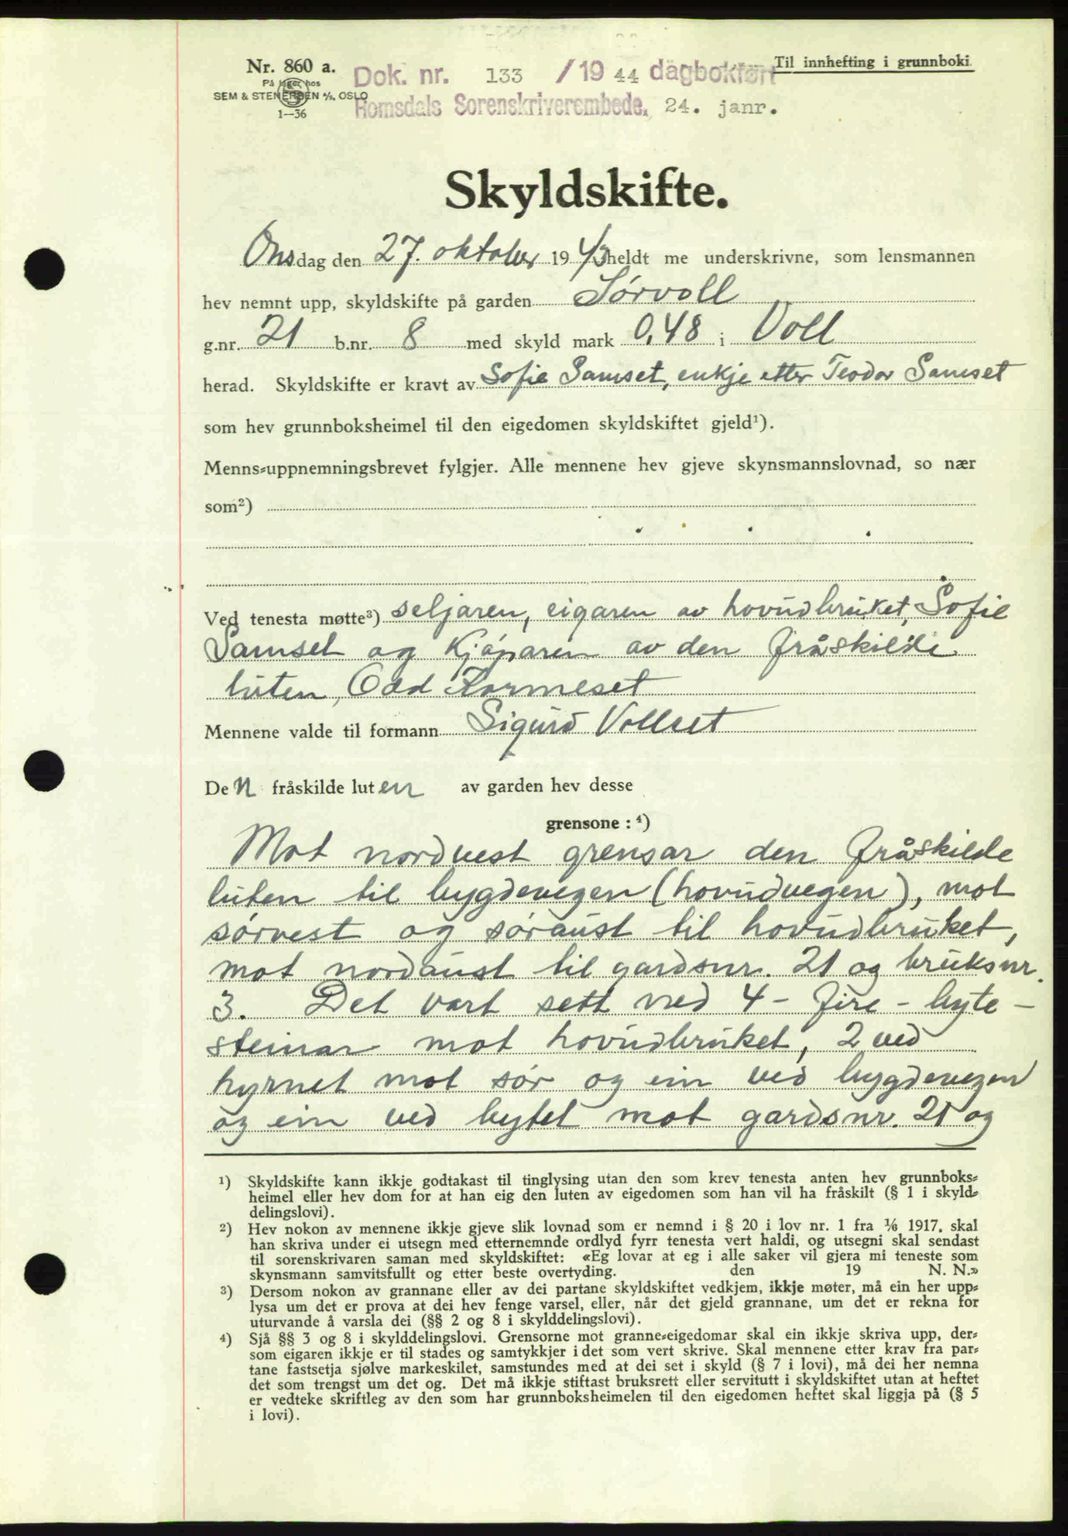 Nr. 860 a.
På lager hos
SEM & STENERSEN A/S, OSLO
1—36
Dok. nr. 133 /19 44 dagbokført
Romsdals Sorenskriverembede, 24. janr.
Til innhefting i grunnboki
Skyldskifte.
Onsdag den 27. oktober 1943 heldt me underskrivne, som lensmannen
hev nemnt upp, skyldskifte på garden Sørvoll
g.nr. 21 b.nr. 8 med skyld mark 0,48 i Voll
herad. Skyldskifte er kravt av Sofie Samset, enkje etter Teodor Samset
som hev grunnboksheimel til den eigedomen skyldskiftet gjeld¹).
Menns-uppnemningsbrevet fylgjer. Alle mennene hev gjeve skynsmannslovnad, so nær
som²)
Ved tenesta møtte³) seljaren, eigaren av hovudbruket, Sofie
Samset og kjøparen av den fråskilde
luten, Odd Kormeset
Mennene valde til formann Sigurd Vollset
Den fråskilde luten av garden hev desse
grensone : ⁴)
Mot nordvest grensar den fråskilde
luten til bygdevegen (hovudvegen), mot
sørvest og søraust til hovudbruket,
mot nordaust til gardsnr. 21 og bruksnr.
3. Det vart sett ned 4 - fire - byte-
steinar mot hovudbruket, 2 ved
hyrnet mot sør og ein ved bygdevegen
og ein ved bytet mot gardsnr. 21 og
¹) Skyldskifte kann ikkje godtakast til tinglysing utan den som krev tenesta anten hev grunnboks-
heimel eller hev dom for at han eig den luten av eigedomen som han vil ha fråskilt (§ 1 i skyld-
delingslovi).
²) Hev nokon av mennene ikkje gjeve slik lovnad som er nemnd i § 20 i lov nr. 1 fra 1/6 1917, skal
han skriva under ei utsegn med etternemnde ordlyd fyrr tenesta vert haldi, og utsegni skal sendast
til sorenskrivaren saman med skyldskiftet: «Eg lovar at eg i alle saker vil gjera mi teneste som
skynsmann samvitsfullt og etter beste overtyding. den 19 N. N.»
³) Dersom nokon av grannane eller av dei partane skyldskiftet vedkjem, ikkje møter, må ein her upp-
lysa um det er prova at dei hev fenge varsel, eller, når det gjeld grannane, um det er rekna for
uturvande å varsla dei (§§ 2 og 8 i skylddelingslovi).
⁴) Sjå §§ 3 og 8 i skylddelingslovi. Grensorne mot granne-eigedomar skal ein ikkje skriva upp, der-
som eigaren ikkje er til stades og samtykkjer i det som vert skrive. Skal mennene etter krav fra par-
tane fastsetja sjølve markeskilet, samstundes med at dei set i skyld (§ 7 i lovi), må dei her nemna
det som trengst um det og. Det må ikkje stiftast bruksrett eller servitutt i skyldskiftet utan at heftet
er vedteke skriftleg av den som har grunnboksheimelen til den eigedomen heftet skal liggja på (§ 5
i lovi).